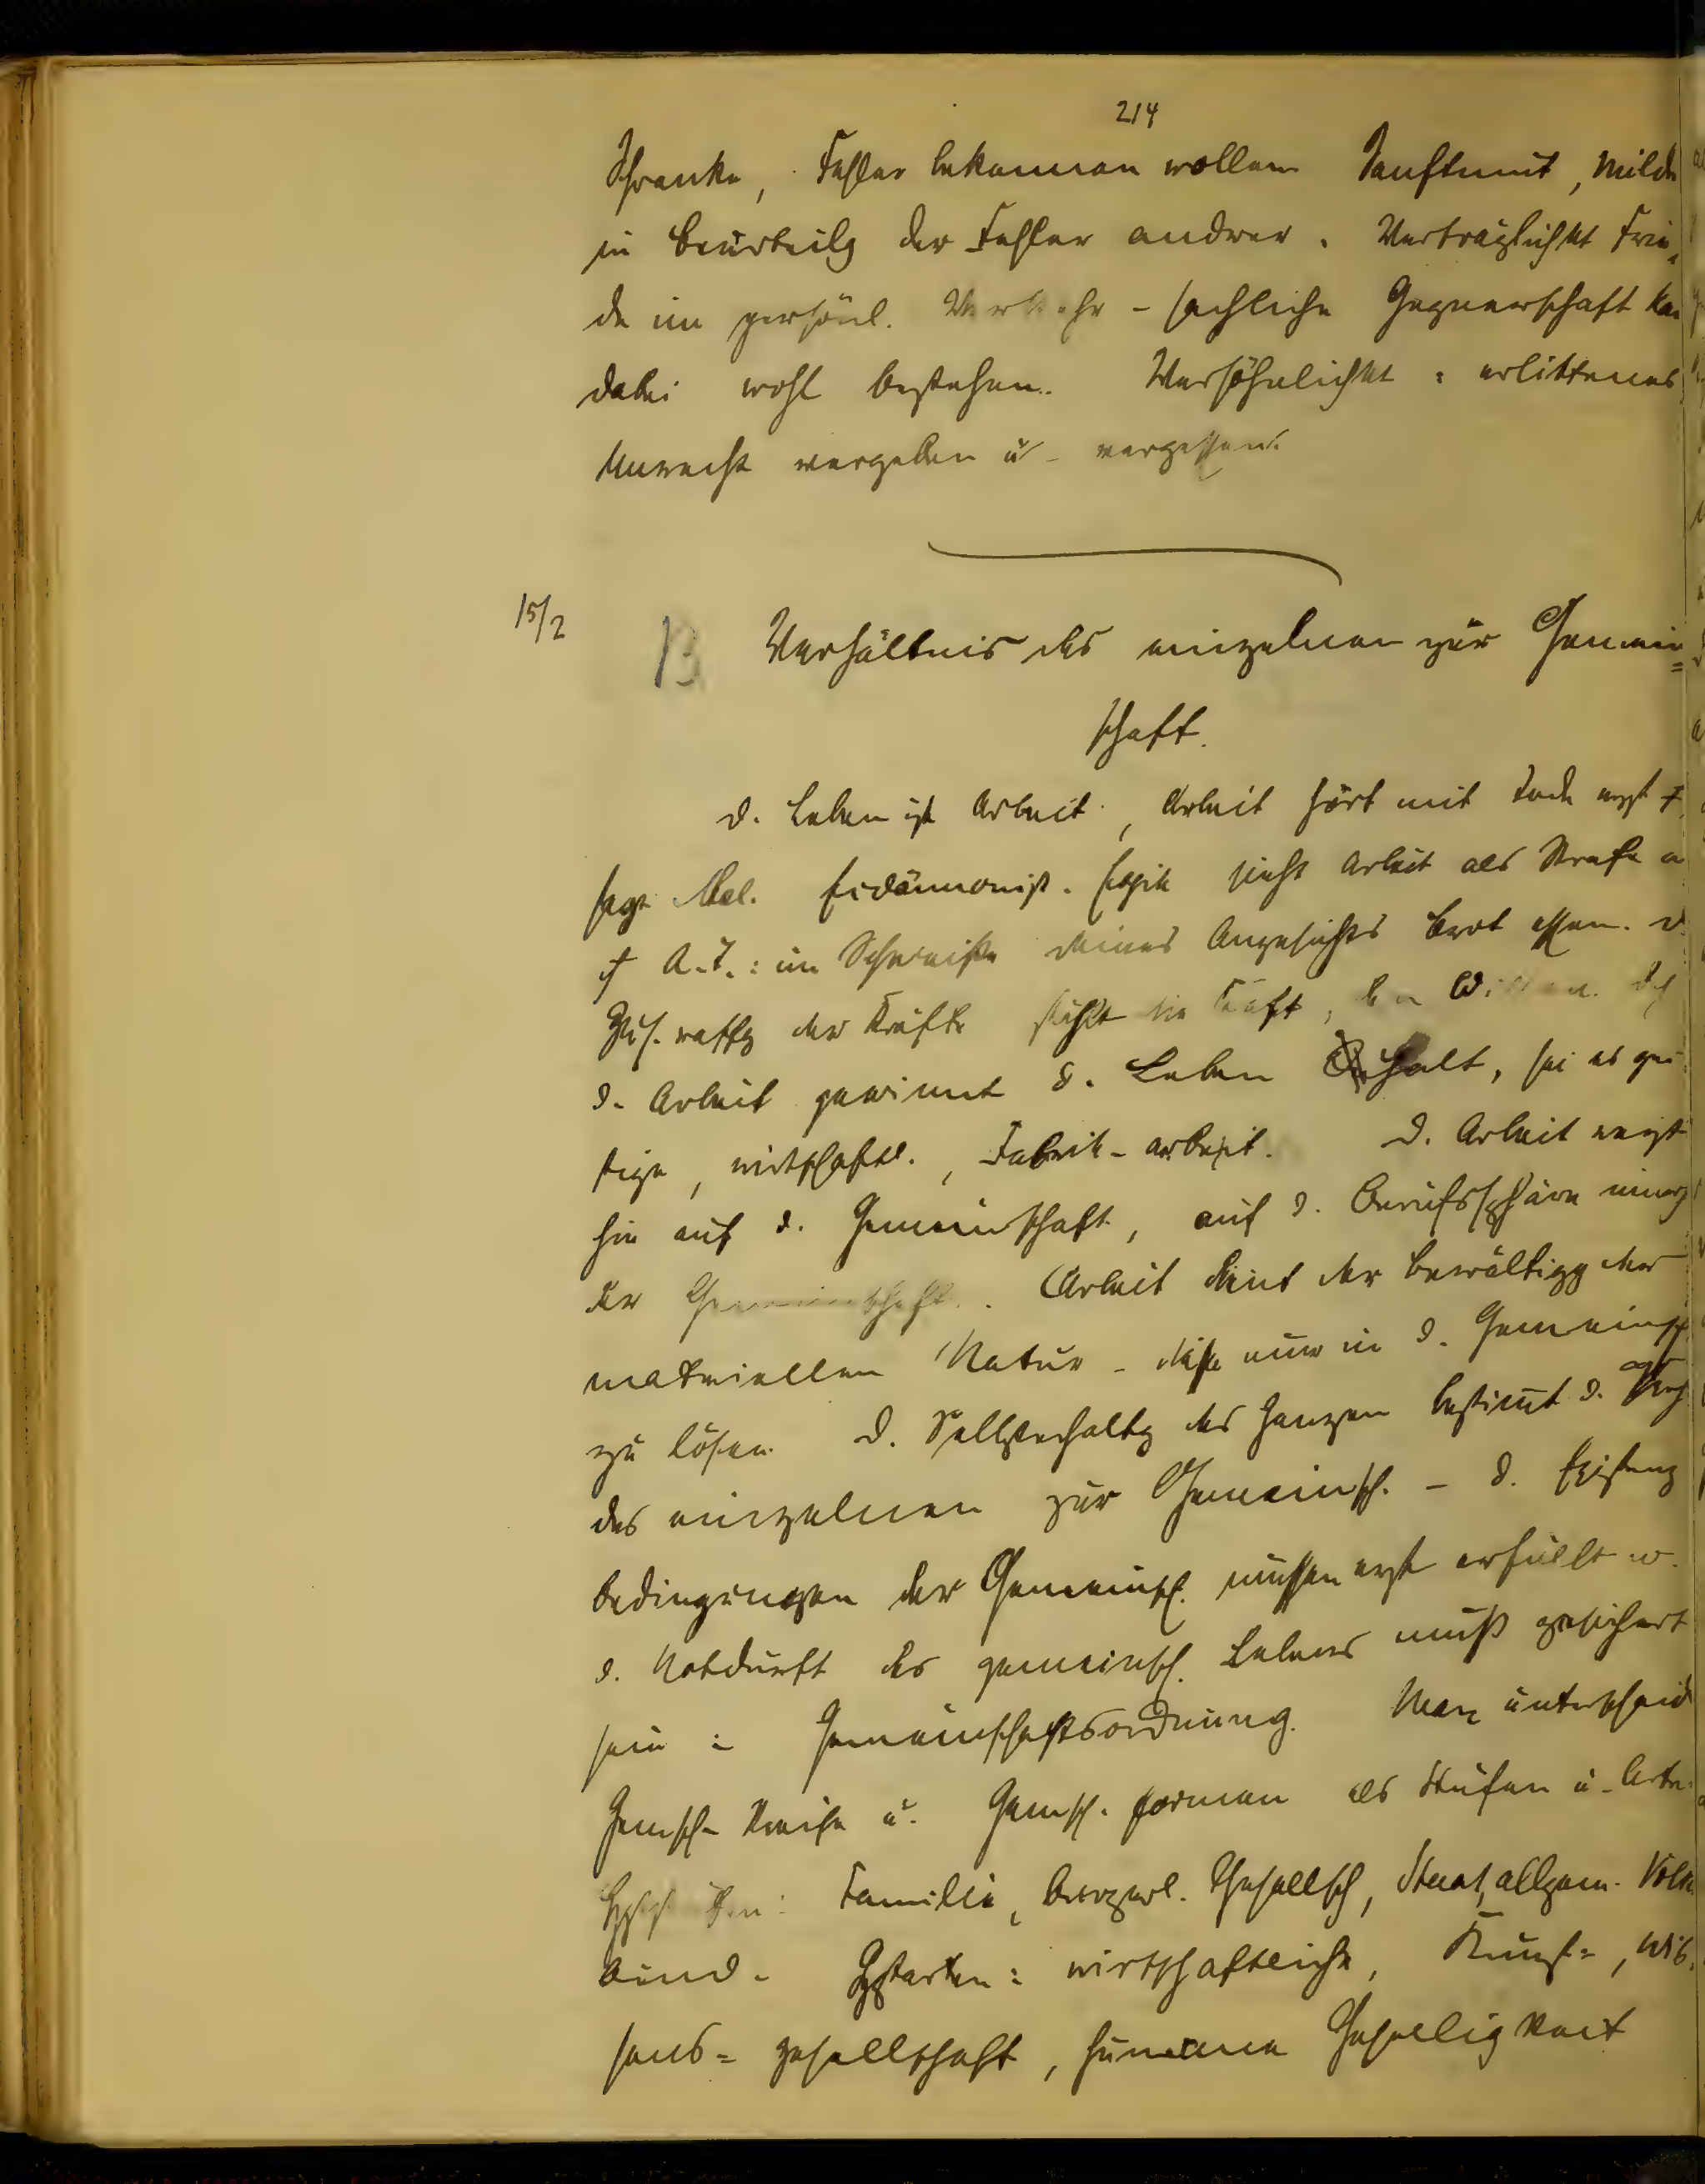 214
Schranke, Fehler bekennen wollen Sanftmut, Milde
in Beurteilg der Fehler andrer. Verträglichkt Frie-
de im persönl. Verkehr - sachliche Gegnerschaft kan
dabei wohl bestehen. Versöhnlichkt : erlittenes
Unrecht vergeben u. vergessen.
15/2
B Verhältnis des einzelnen zur Gemein=
schaft.
D. Leben ist Arbeit, Arbeit hört mit Tode erst
sagt Mel. Eudämonist. Ethik sieht Arbeit als Strafe a
cf A.T.: im Schweiße deines Angesichts Brot essen. D.
Zus. raffg der Kräfte stählt die Kraft, den Willen. Dch
d. Arbeit gewinnt d. Leben Gehalt, sei es gei-
stige, wirtschaftl., Fabrik-arbeit. D. Arbeit weist
hin auf d. Gemeinschaft, auf d. Berufssphäre innerh
der Gemeinschaft. Arbeit dient der Bewältigg der
materiellen Natur - diese nur in d. Gemeinsch
zu lösen. D. Selbsterhaltg des Ganzen bestimmt d.
des einzelnen zur Gemeinsch. - d. Existenz
bedingungen der Gemeinsch. müssen erst erfüllt w.
d. Notdurft des gemeinsch. Lebens muß gesichert
sein : Gemeinschaftsordnung. Man unterscheid
Gemsch- Kreise u. Gemsch. formen als Stufen u. Arten
Familie, bürgerl. Gesellsch, Staat, allgem. Völker
bund. wirtschaftliche, Kunst=, Wis
sens= gesellschaft, humane Geselligkeit